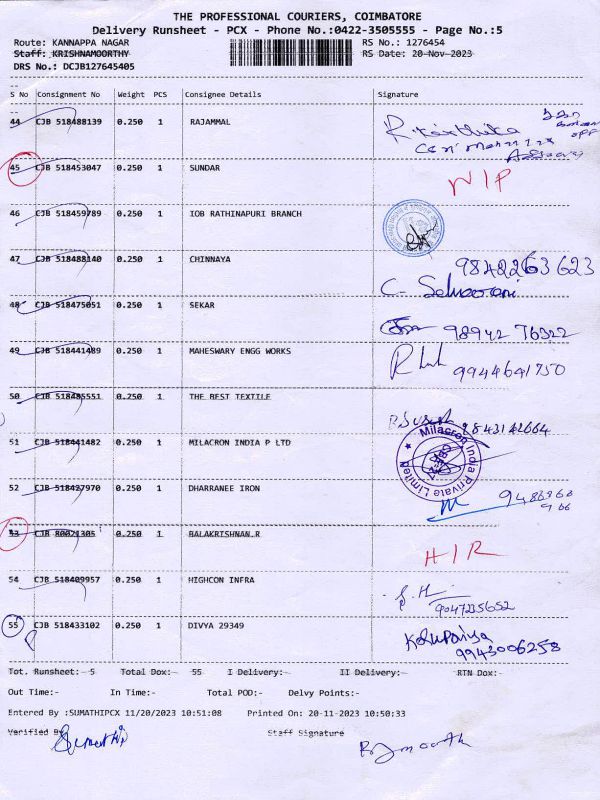 THE PROFESSIONAL COURIERS, COIMBATORE
Delivery Runsheet - PCX - Phone No.:0422-3505555 - Page No.:5
Route: KANNAPPA NAGAR RS No.: 1276454
Staff: KRISHNAMOORTHY RS Date: 20-Nov-2023
DRS No.: DCJB127645405
S No Consignment No Weight PCS Consignee Details Signature
44 CJB 518488139 0.250 1 RAJAMMAL
45 CJB 518453047 0.250 1 SUNDAR NIP
46 CJB 518459789 0.250 1 IOB RATHINAPURI BRANCH
47 CJB 518488140 0.250 1 CHINNAYA 9842263623
C. Selvarani
48 CJB 518475051 0.250 1 SEKAR 98942 76322
49 CJB 518441489 0.250 1 MAHESWARY ENGG WORKS 9944691750
50 CJB 518485551 0.250 1 THE BEST TEXTILE 9843142664
51 CJB 518441482 0.250 1 MILACRON INDIA P LTD Milacron India Private Limited
52 CJB 518427970 0.250 1 DHARRANEE IRON
53 CJB 80021305 0.250 1 BALAKRISHNAN.R HIR
54 CJB 518409957 0.250 1 HIGHCON INFRA 9047235652
55 CJB 518433102 0.250 1 DIVYA 29349 9943006258
Tot. Runsheet:- 5 Total Dox:- 55 I Delivery:- II Delivery:- RTN Dox:-
Out Time:- In Time:- Total POD:- Delvy Points:-
Entered By :SUMATHIPCX 11/20/2023 10:51:08 Printed On: 20-11-2023 10:50:33
Verified By Sumathi Staff Signature